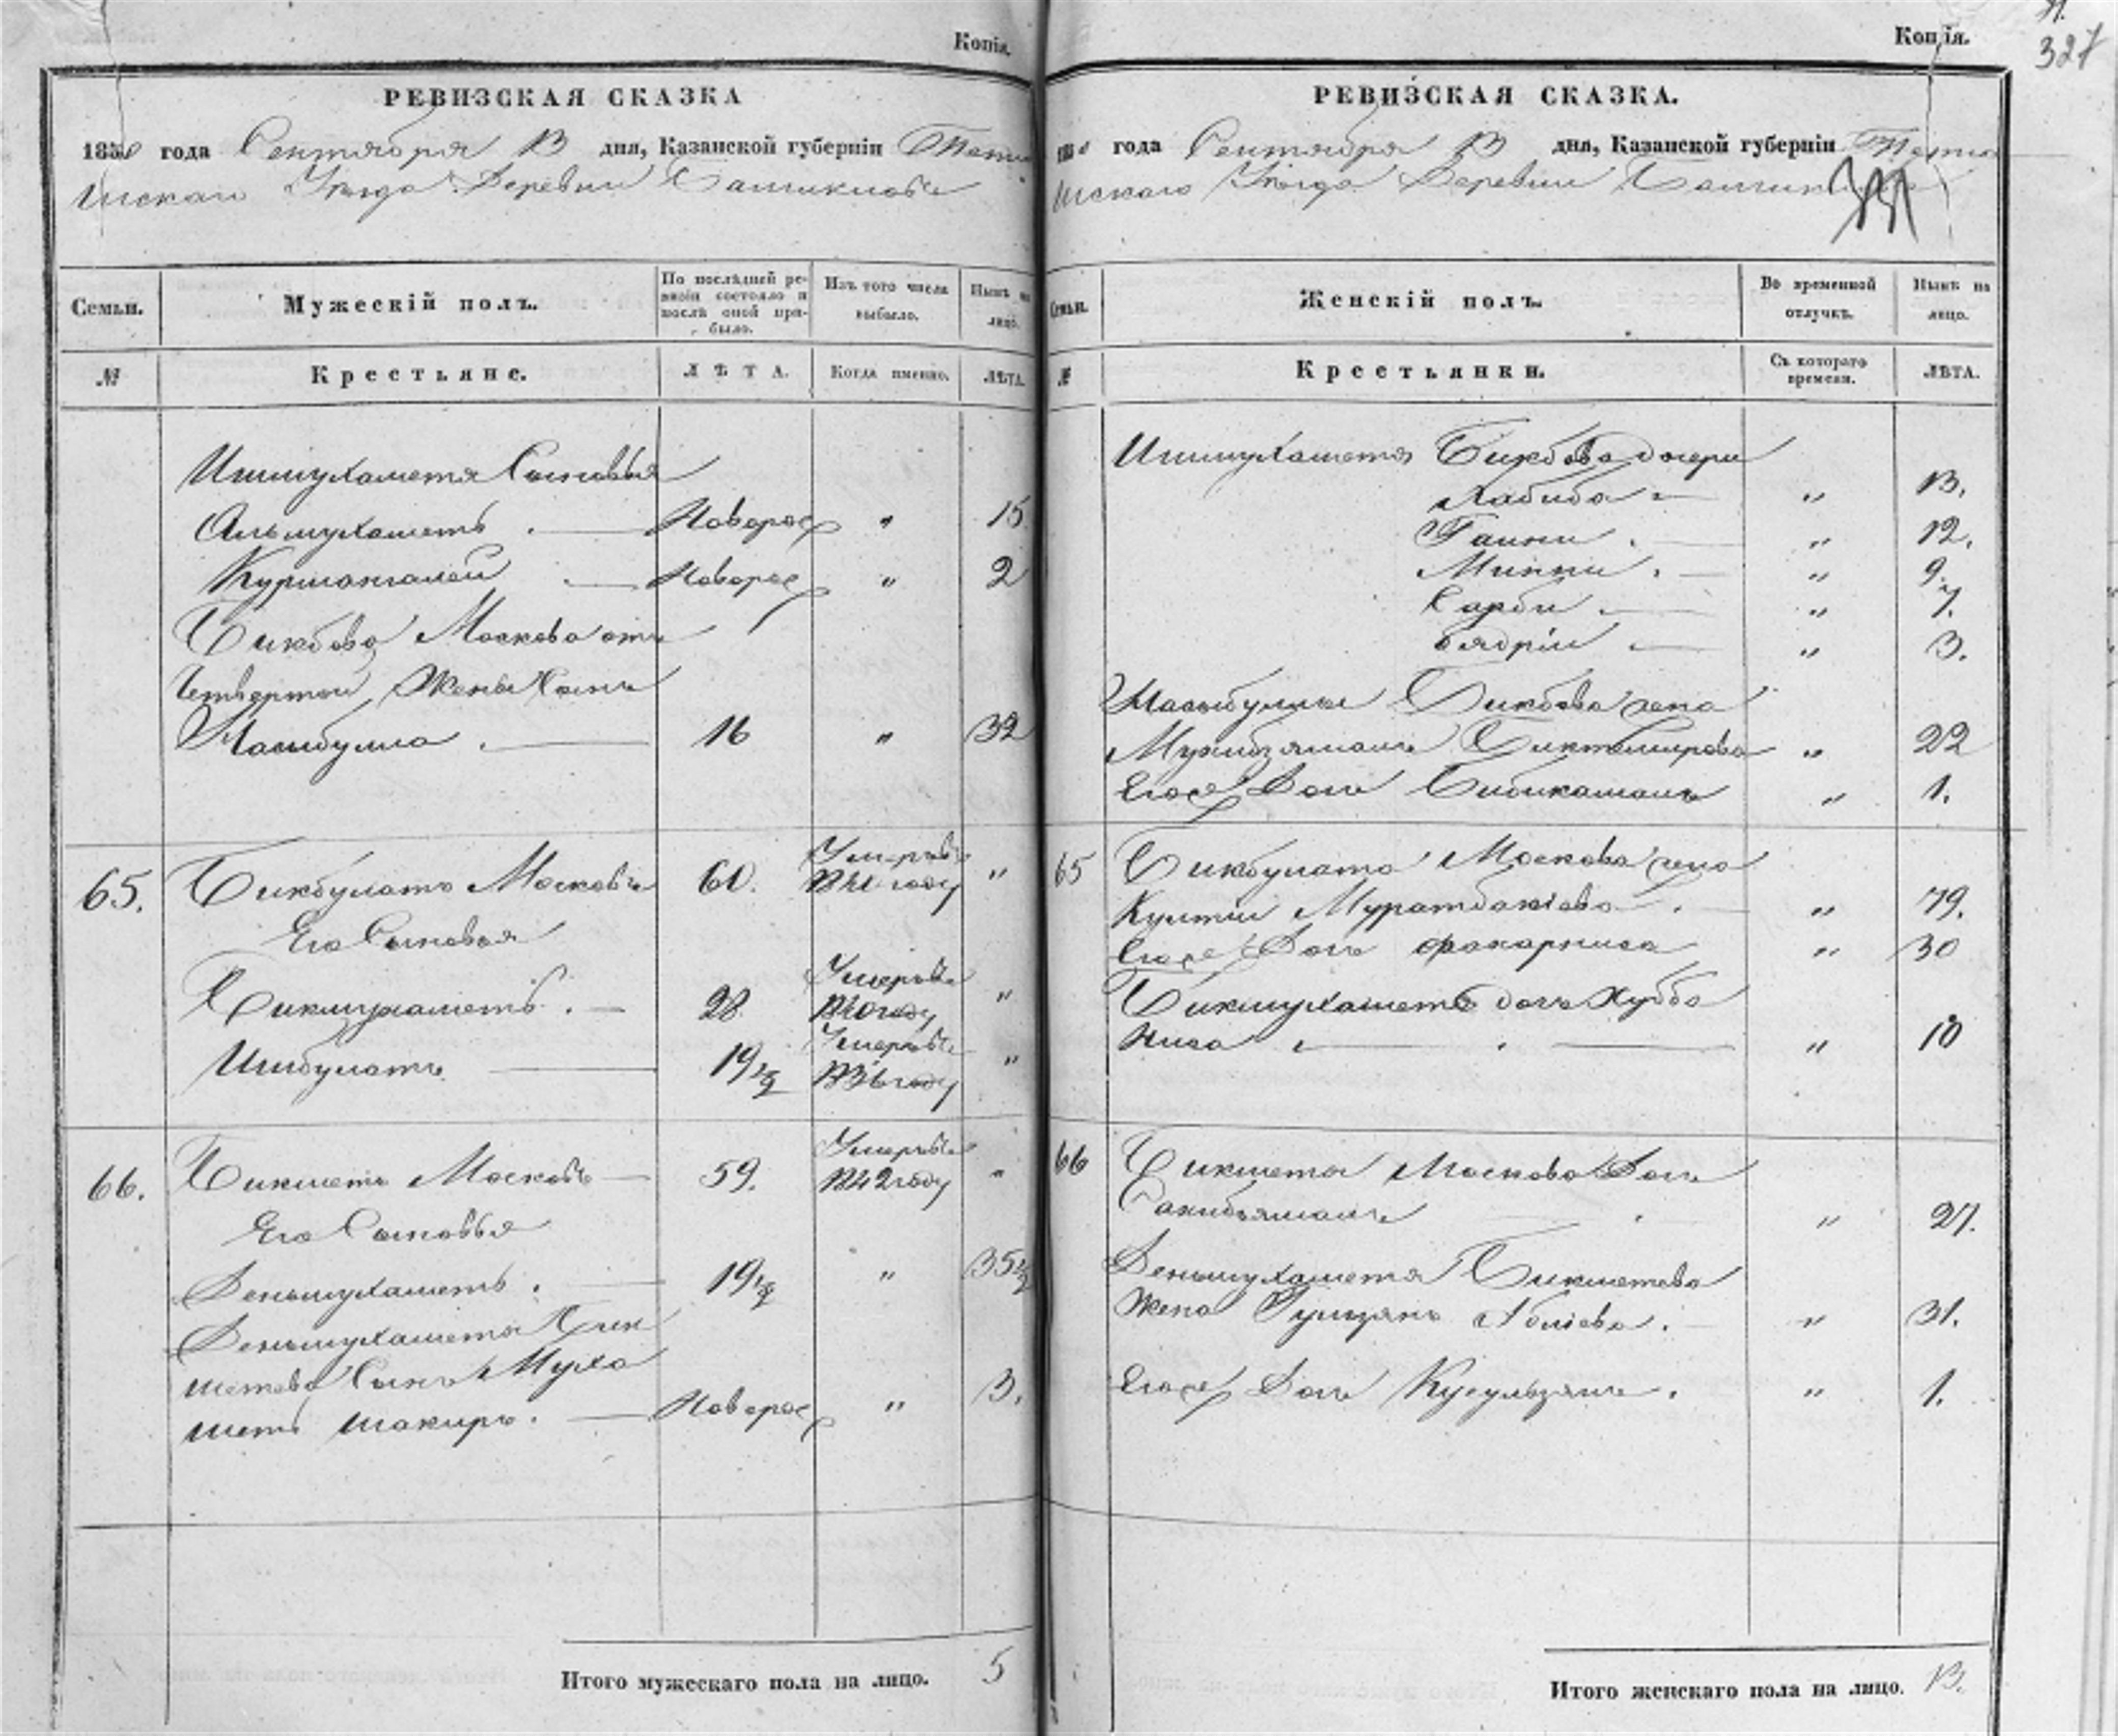 Копія.
РЕВИЗСКАЯ СКАЗКА
1850 года Сентября 13 дня, Казанской губерніи Тетю
шскаго Уѣзда Деревни
Семьи.
Мужескій полъ.
По послѣдней ре-
визіи состояло и
послѣ оной при-
было.
Изъ того числа
выбыло.
Нынѣ на
лицо.
№
Крестьяне.
ЛѢТА.
Когда именно.
ЛѢТА.
Ишмухаметя Сыновья
Альмухаметъ . — Новорос „ 15
Курмангалей — Новорос „ 2
Бикбова Москова отъ
Четвертой Жены Сынъ
Насыбулла . — 16 „ 32
65. Бикбулатъ Московъ 60. Умеръ въ
1841 году „
Его Сыновья
Бикмухаметъ . — 28 Умеръ въ
1840 году „
Ишбулатъ — 19½ Умеръ въ
1836 году „
66. Бикметъ Московъ — 59. Умеръ въ
1842 году „
Его Сыновья
Деньмухаметъ . — 19½ „ 35½
Деньмухамета Бик
метева Сынъ Муха
метъ шакиръ . — Новорос „ 3.
Итого мужескаго пола на лицо. 5
Копія.
327
РЕВИЗСКАЯ СКАЗКА.
1850 года Сентября 13 дня, Казанской губерніи Тетю
шскаго Уѣзда Деревни
Семьи.
Женскій полъ.
Во временной
отлучкѣ.
Нынѣ на
лицо.
№
Крестьянки.
Съ котораго
времени.
ЛѢТА.
Ишмухаметя Бикбова дочери
Хабиба — „ 13.
Гайни . — „ 12.
Минни . — „ 9.
Сарби . — „ 7.
Бядріи — „ 3.
Насыбуллы Бикбова жена
Мухибзямалъ Биктемирова „ 22
Ея Дочь Бибикамалъ „ 1.
65 Бикбулата Москова жена
Муратбакіева . — „ 79.
Ея Дочь Факарниса „ 30
Бикмухаметя дочь Хубба
Ниса — „ 10
66 Бикметя Москова Дочь
Сахибзямалъ „ 27.
Деньмухаметя Бикметева
Жена Гульзянъ Абліева . — „ 31.
Ея Дочь . „ 1.
Итого женскаго пола на лицо. 13.